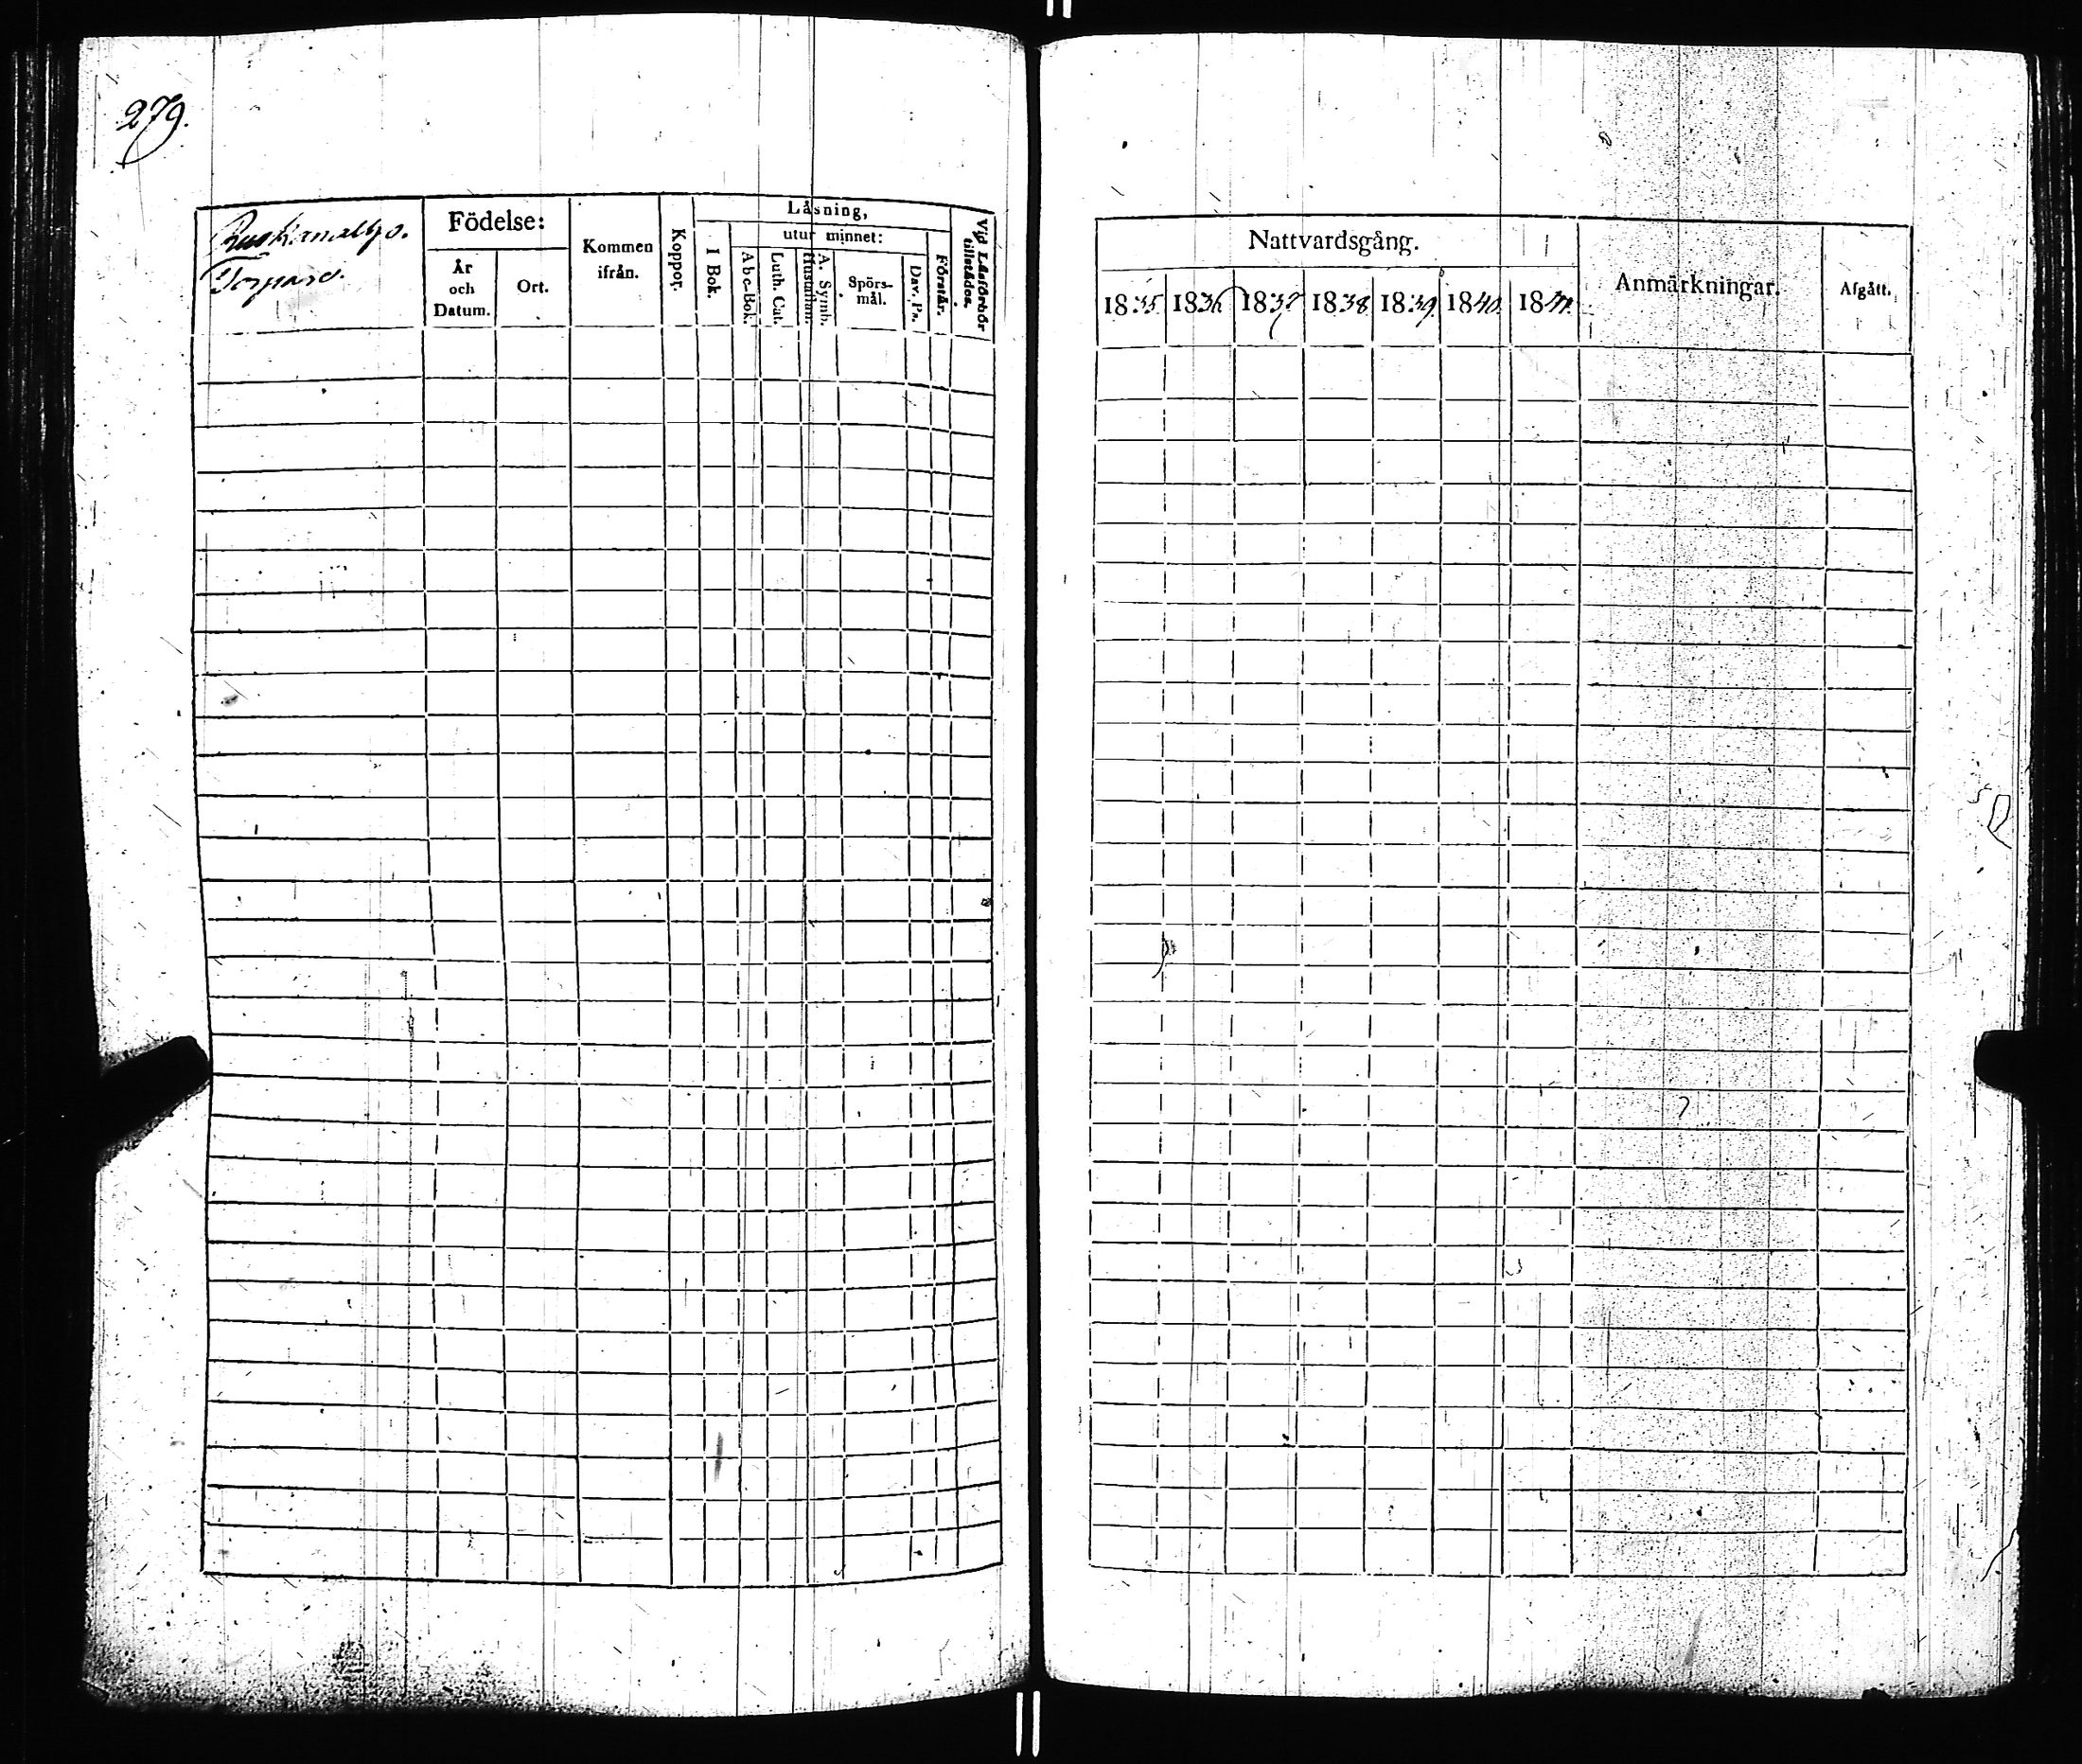 279.
Ruskemalby.
Torpare.
Födelse:
År
och
Datum.
Ort.
Kommen
ifrån.
Koppor.
Läsning,
I Bok.
utur minnet:
Abc-Bok.
Luth. Cat.
A. Symb.
Hustaflan.
Spörs-
mål.
Dav. Ps.
Förstår.
Vid Läsförhör
tillstädes.
Nattvardsgång.
1835 1836 1837 1838 1839. 1840. 1841.
Anmärkningar.
Afgått.